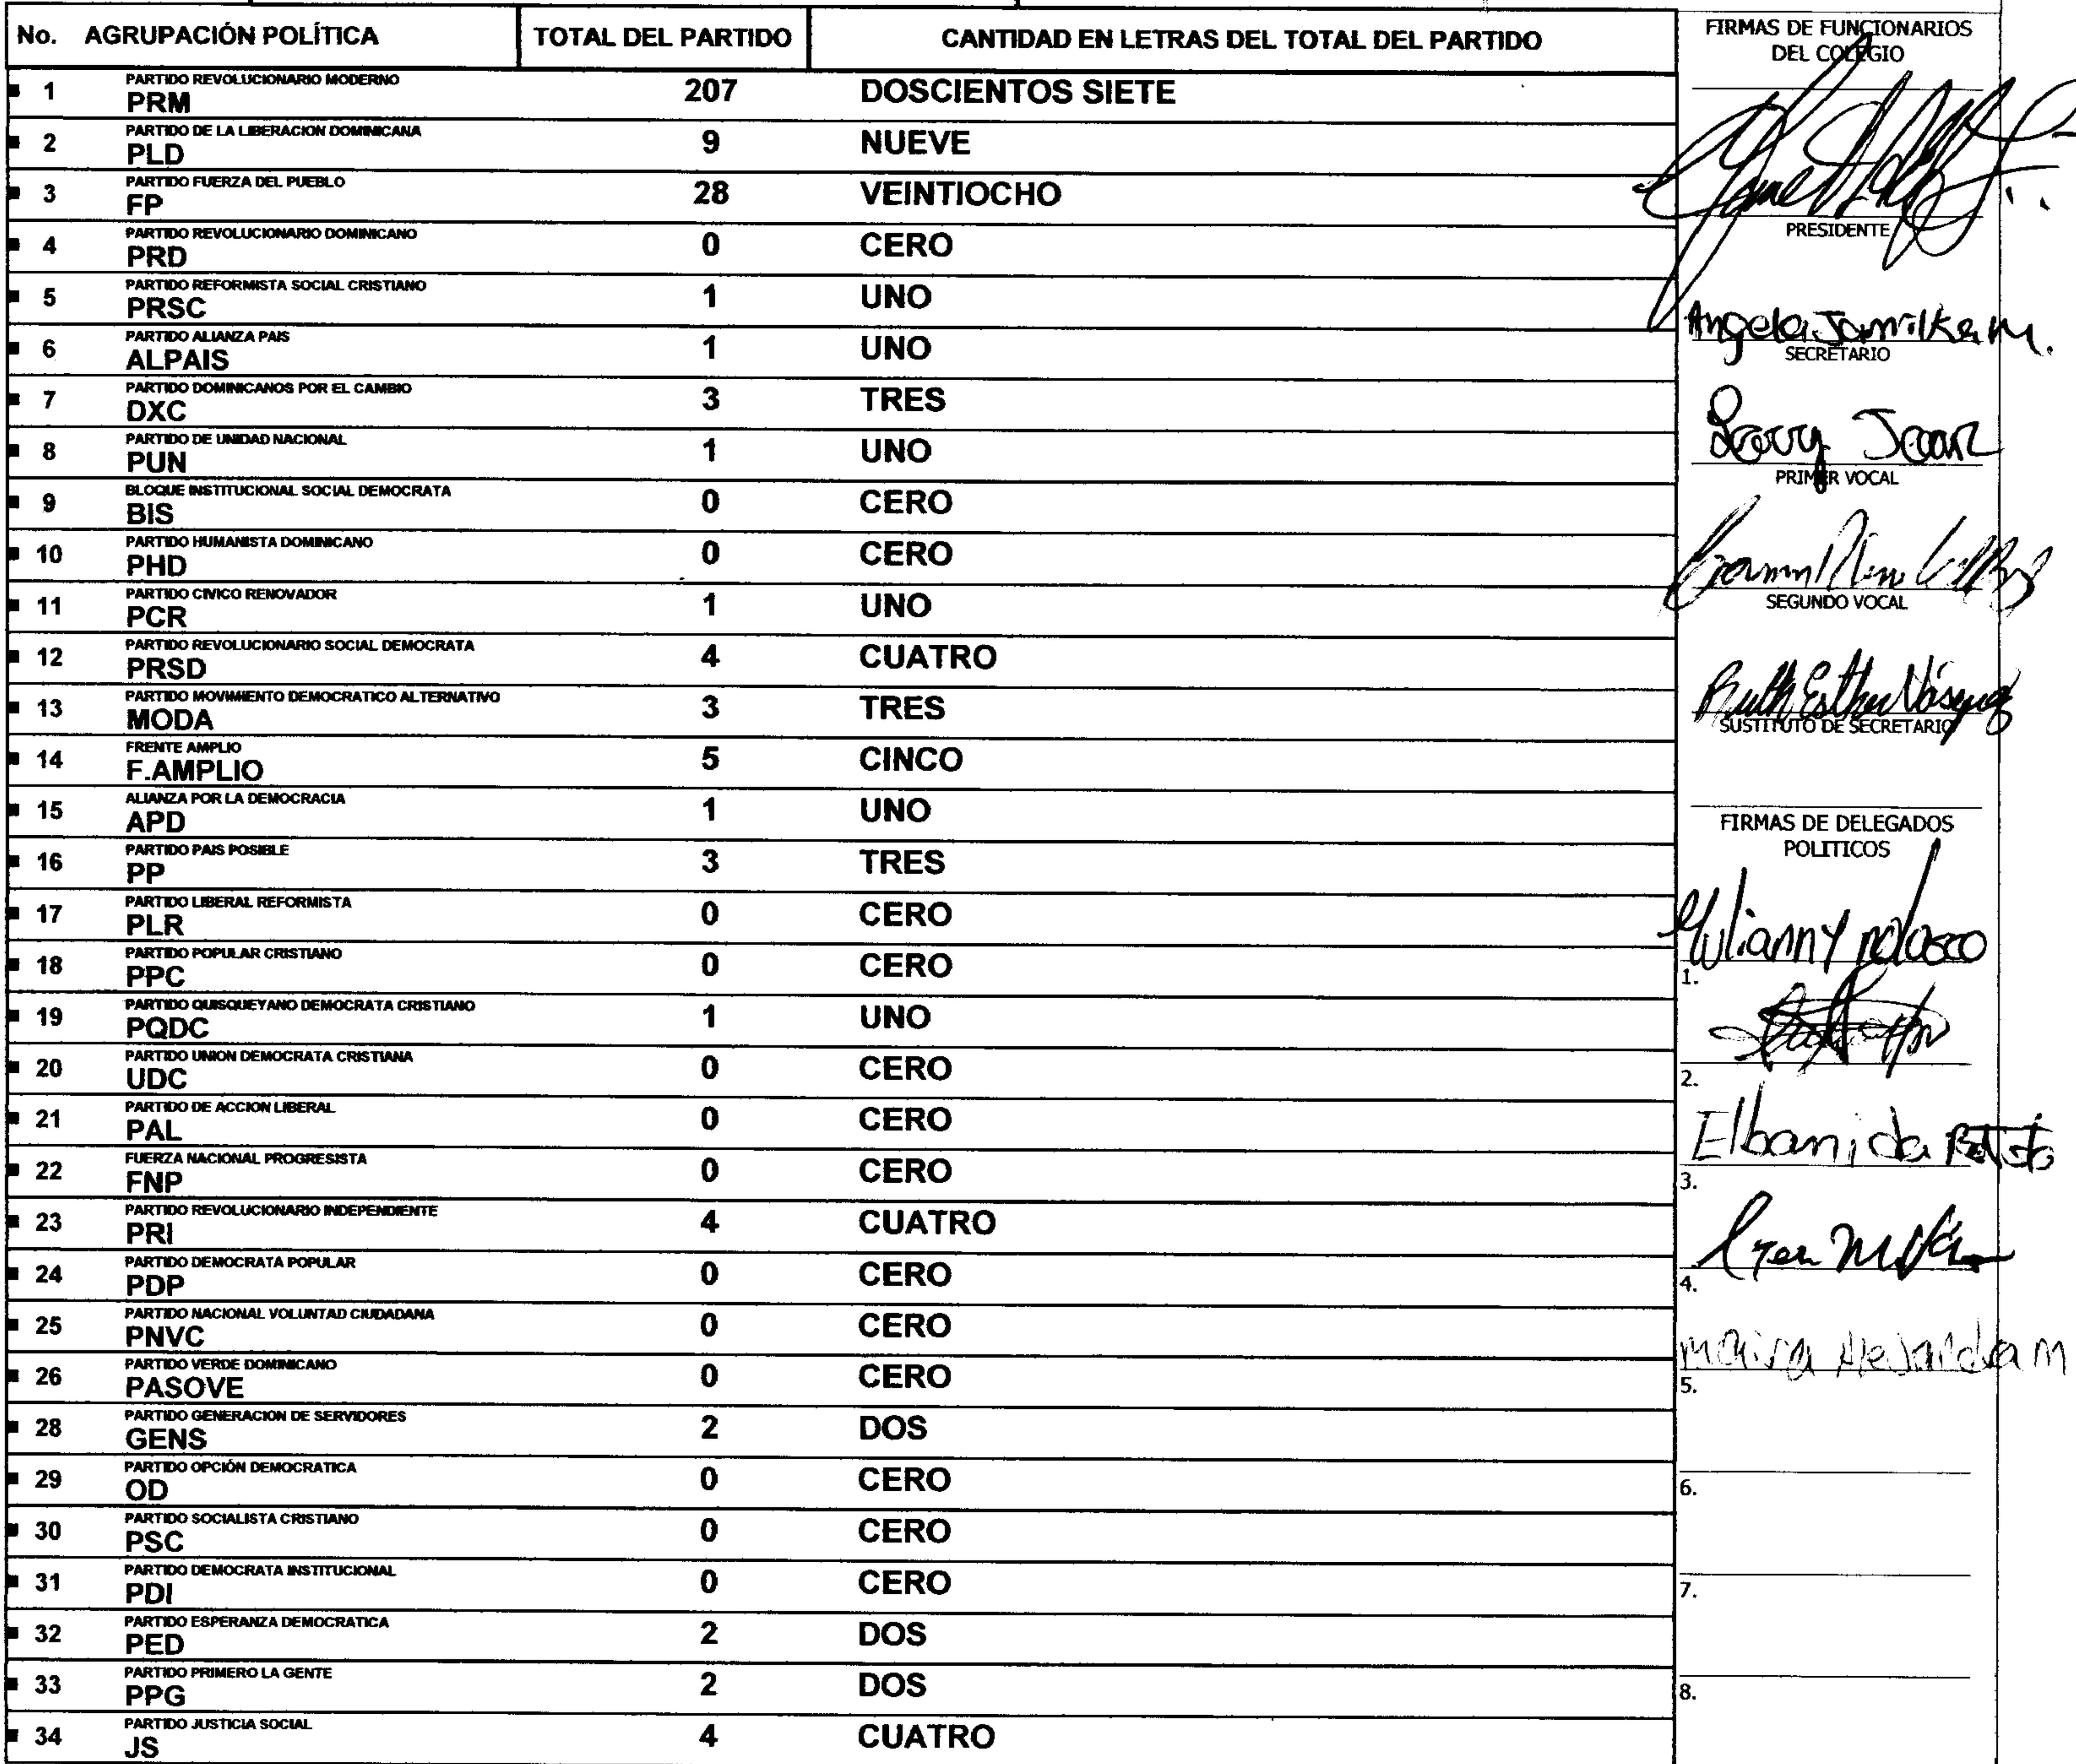 No. AGRUPACIÓN POLÍTICA TOTAL DEL PARTIDO CANTIDAD EN LETRAS DEL TOTAL DEL PARTIDO
1 PARTIDO REVOLUCIONARIO MODERNO
PRM 207 DOSCIENTOS SIETE
2 PARTIDO DE LA LIBERACION DOMINICANA
PLD 9 NUEVE
3 PARTIDO FUERZA DEL PUEBLO
FP 28 VEINTIOCHO
4 PARTIDO REVOLUCIONARIO DOMINICANO
PRD 0 CERO
5 PARTIDO REFORMISTA SOCIAL CRISTIANO
PRSC 1 UNO
6 PARTIDO ALIANZA PAIS
ALPAIS 1 UNO
7 PARTIDO DOMINICANOS POR EL CAMBIO
DXC 3 TRES
8 PARTIDO DE UNIDAD NACIONAL
PUN 1 UNO
9 BLOQUE INSTITUCIONAL SOCIAL DEMOCRATA
BIS 0 CERO
10 PARTIDO HUMANISTA DOMINICANO
PHD 0 CERO
11 PARTIDO CIVICO RENOVADOR
PCR 1 UNO
12 PARTIDO REVOLUCIONARIO SOCIAL DEMOCRATA
PRSD 4 CUATRO
13 PARTIDO MOVIMIENTO DEMOCRATICO ALTERNATIVO
MODA 3 TRES
14 FRENTE AMPLIO
F.AMPLIO 5 CINCO
15 ALIANZA POR LA DEMOCRACIA
APD 1 UNO
16 PARTIDO PAIS POSIBLE
PP 3 TRES
17 PARTIDO LIBERAL REFORMISTA
PLR 0 CERO
18 PARTIDO POPULAR CRISTIANO
PPC 0 CERO
19 PARTIDO QUISQUEYANO DEMOCRATA CRISTIANO
PQDC 1 UNO
20 PARTIDO UNION DEMOCRATA CRISTIANA
UDC 0 CERO
21 PARTIDO DE ACCION LIBERAL
PAL 0 CERO
22 FUERZA NACIONAL PROGRESISTA
FNP 0 CERO
23 PARTIDO REVOLUCIONARIO INDEPENDIENTE
PRI 4 CUATRO
24 PARTIDO DEMOCRATA POPULAR
PDP 0 CERO
25 PARTIDO NACIONAL VOLUNTAD CIUDADANA
PNVC 0 CERO
26 PARTIDO VERDE DOMINICANO
PASOVE 0 CERO
28 PARTIDO GENERACION DE SERVIDORES
GENS 2 DOS
29 PARTIDO OPCIÓN DEMOCRATICA
OD 0 CERO
30 PARTIDO SOCIALISTA CRISTIANO
PSC 0 CERO
31 PARTIDO DEMOCRATA INSTITUCIONAL
PDI 0 CERO
32 PARTIDO ESPERANZA DEMOCRATICA
PED 2 DOS
33 PARTIDO PRIMERO LA GENTE
PPG 2 DOS
34 PARTIDO JUSTICIA SOCIAL
JS 4 CUATRO
FIRMAS DE FUNCIONARIOS
DEL COLEGIO
PRESIDENTE
Angela Jamilka M.
SECRETARIO
PRIMER VOCAL
SEGUNDO VOCAL
Ruth Esther Vásquez
SUSTITUTO DE SECRETARIO
FIRMAS DE DELEGADOS
POLITICOS
1. Yulianny nolasco
2.
3. Elbanida
4.
5.
6.
7.
8.